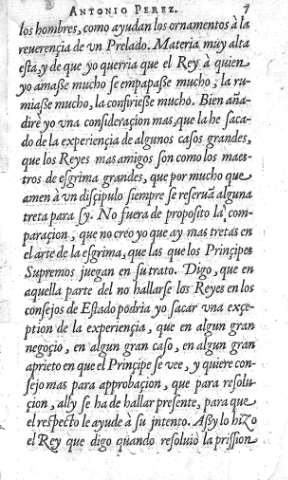 ANTONIO PEREZ. 7
los hombres, como ayudan los ornamentos à la
reuerençia de vn Prelado. Materia muy alta
esta, y de que yo querria que el Rey à quien
yo amasse mucho se empapasse mucho, la ru-
miasse mucho, la confiriesse mucho. Bien aña-
dirè yo vna consideraçion mas, que la he saca-
do de la experiençia de algunos casos grandes,
que los Reyes mas amigos son como los maes-
tros de esgrima grandes, que por mucho que
amen à vn disçipulo siempre se reseruã alguna
treta para sy. No fuera de proposito la com-
paraçion, que no creo yo que ay mas tretas en
el arte de la esgrima, que las que los Prinçipes
Supremos juegan en su trato. Digo, que en
aquella parte del no hallarse los Reyes en los
consejos de Estado podria yo sacar vna exçe-
ption de la experiençia, que en algun gran
negoçio, en algun gran caso, en algun gran
aprieto en que el Prinçipe se vee, y quiere con-
sejo mas para approbaçion, que para resolu-
çion, ally se ha de hallar presente, para que
el respecto le ayude à su jntento. Assy lo hizo
el Rey que digo quando resoluiò la prission